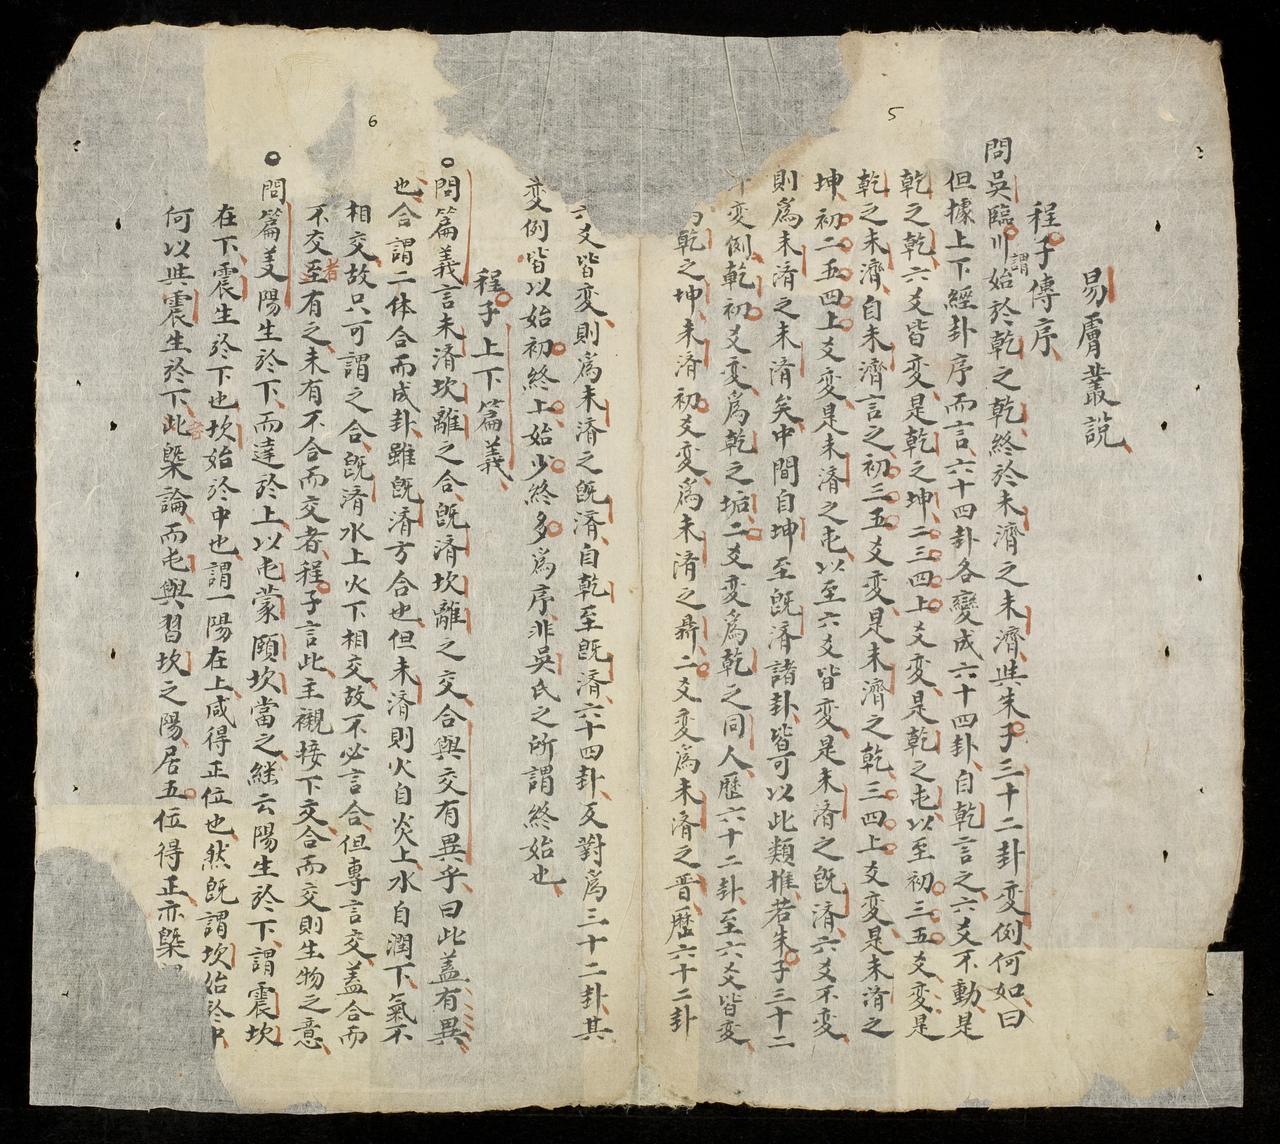 5
易膚叢說
程子傳序
問吳臨川謂始於乾之乾終於未濟之未濟與朱子三十二卦变例何如曰
但據上下經卦序而言六十四卦各變成六十四卦自乾言之六爻不動是
乾之乾六爻皆变是乾之坤二三四上爻变是乾之屯以至初三五爻变是
乾之未濟自未濟言之初三五爻变是未濟之乾三四上爻变是未済之
坤初二五四上爻变是未済之屯以至六爻皆变是未済之旣済六爻不变
則爲未済之未済矣中間自坤至旣済諸卦皆可以此類推若朱子三十二
变例乾初爻变爲乾之垢二爻变爲乾之同人歷六十二卦至六爻皆变
乾之坤未済初爻变爲未済之睽二爻变爲未済之晋歷六十二卦
六爻皆变則爲未済之旣済自乾至旣済六十四卦反對爲三十二卦其
变例皆以始初終上始少終多爲序非吳氏之所謂終始也
程子上下篇義
6
○問篇義言未済坎離之合旣済坎離之交合與交有異乎曰此盖有異
也合謂二体合而成卦雖旣済方合也但未済則火自炎上水自潤下氣不
相交故只可謂之合旣済水上火下相交故不必言合但專言交盖合而
不交者至有之未有不合而交者程子言此主襯接下交合而交則生物之意
○問篇義陽生於下而達於上以屯蒙頤坎當之継云陽生於下謂震坎
在下震生於下也坎始於中也謂一陽在上咸得正位也然旣謂坎始於中
何以與震生於下此槩論而屯與習坎之陽居五位得正亦槩